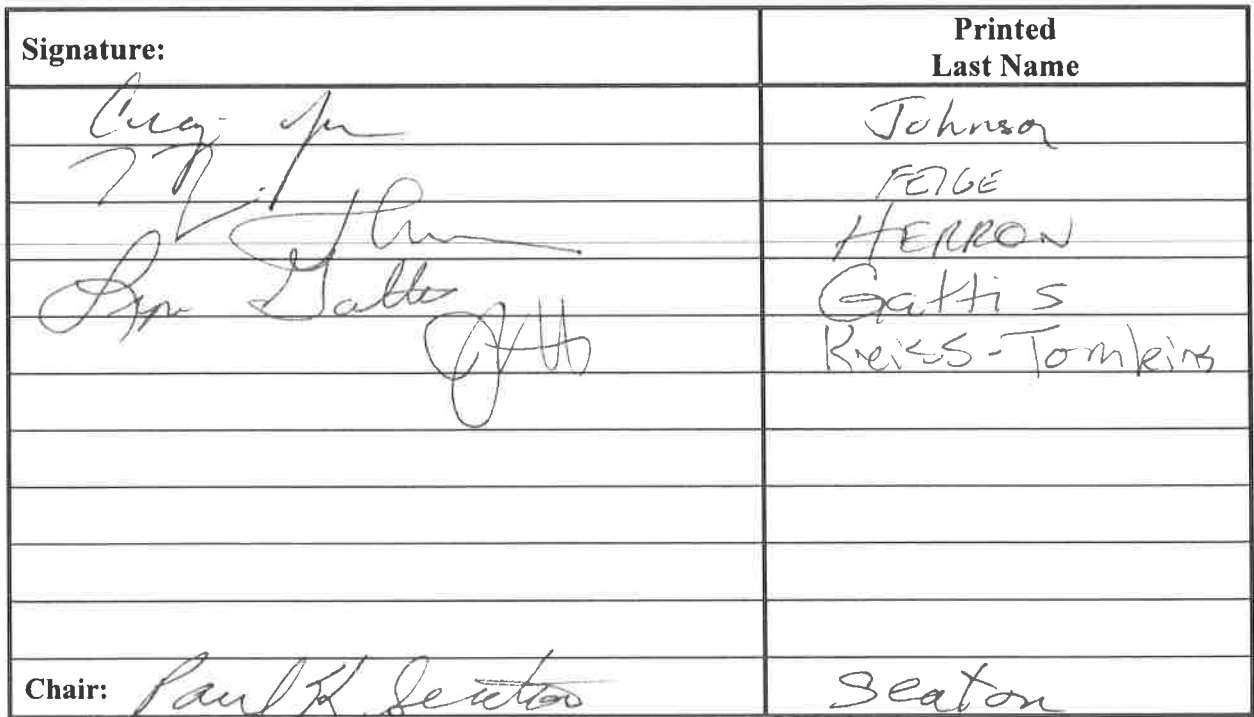 Signature:
Printed
Last Name
Johnson
FEIGE
HERRON
Lynn Gattis
Gattis
Kreiss-Tomkins
Chair: Paul K Seaton
Seaton